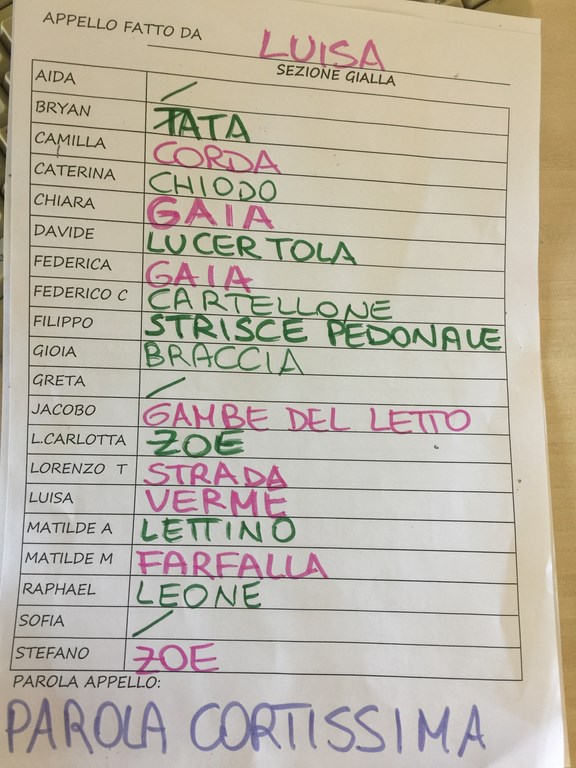 APPELLO FATTO DA LUISA
SEZIONE GIALLA
AIDA /
BRYAN TATA
CAMILLA CORDA
CATERINA CHIODO
CHIARA GAIA
DAVIDE LUCERTOLA
FEDERICA GAIA
FEDERICO C CARTELLONE
FILIPPO STRISCE PEDONALE
GIOIA BRACCIA
GRETA /
JACOBO GAMBE DEL LETTO
L.CARLOTTA ZOE
LORENZO T STRADA
LUISA VERME
MATILDE A LETTINO
MATILDE M FARFALLA
RAPHAEL LEONE
SOFIA /
STEFANO ZOE
PAROLA APPELLO:
PAROLA CORTISSIMA